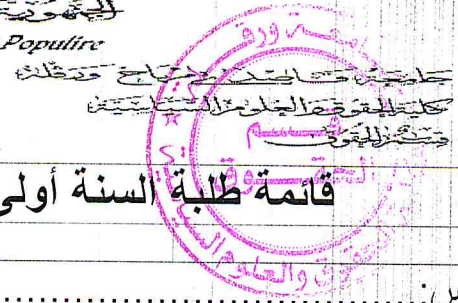 الجمهورية
Populire
جامعة قاصدي مرباح ورقلة
كلية الحقوق والعلوم السياسية
قسم الحقوق
قائمة طلبة السنة أولى